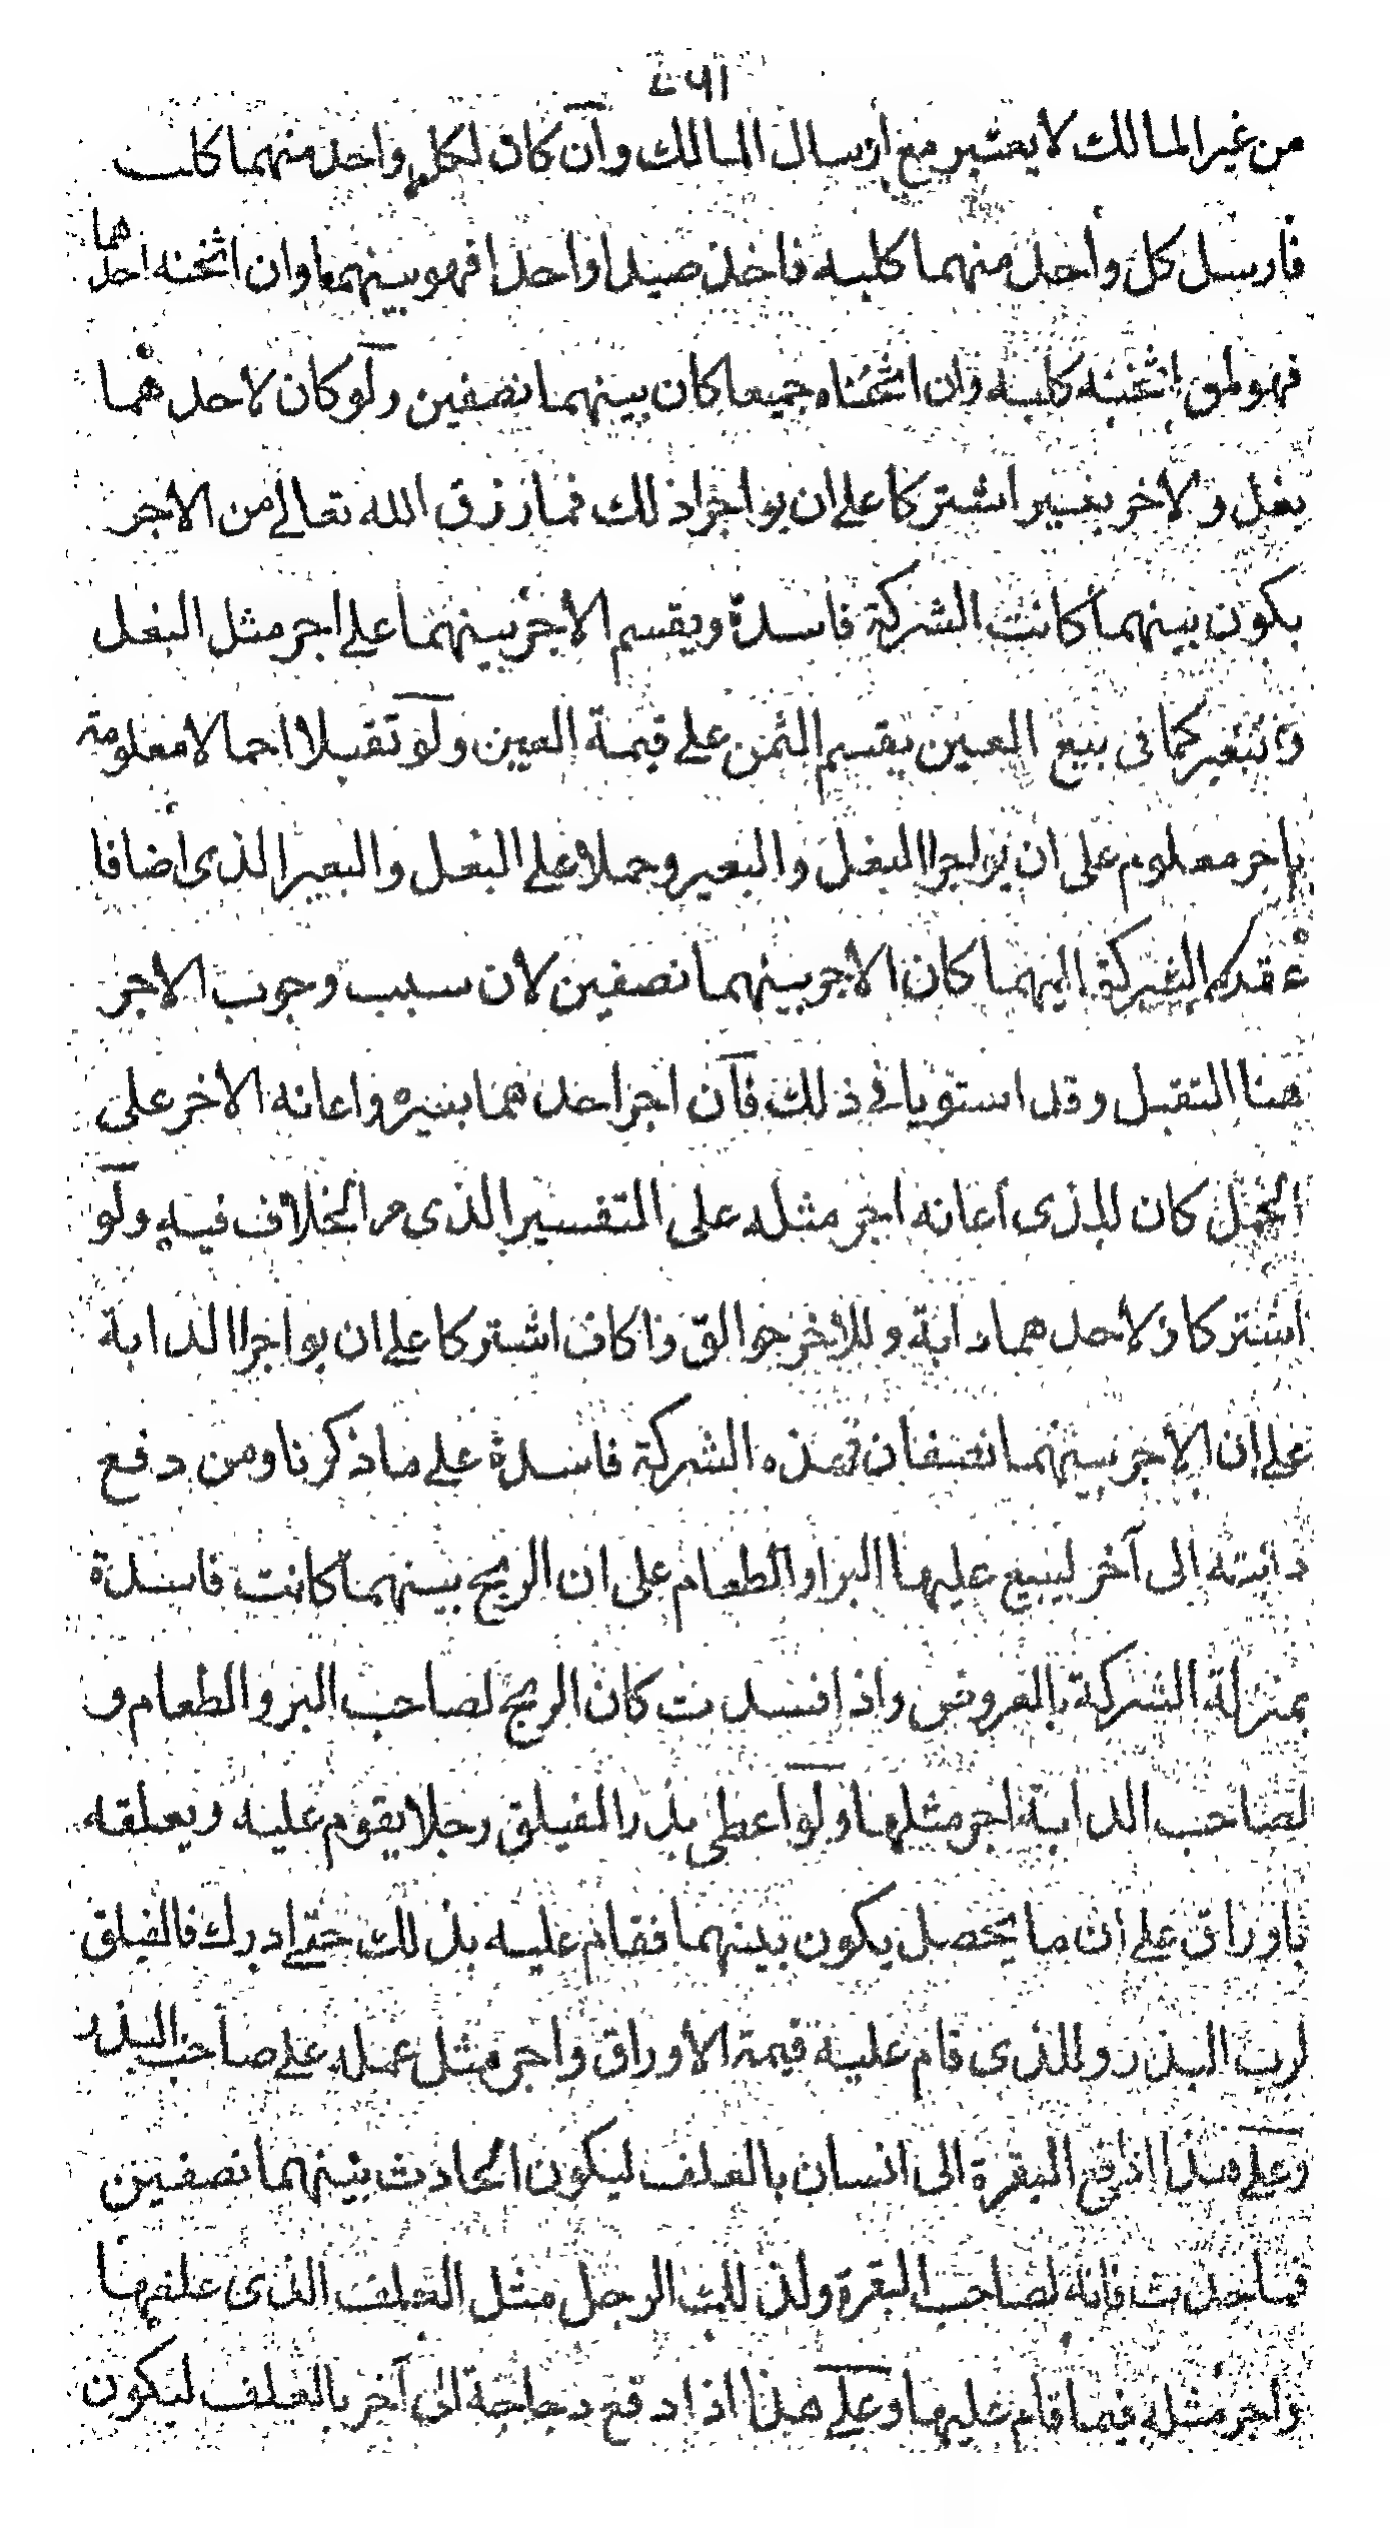 ٧٦١
من غير المالك لا يعتبر مع ارسال المالك وان كان لكل واحد منهما كلب
فارسل كل واحد منهما كلبه فاخذ صيدا واحدا فهو بينهما وان اثخنه احدهما
فهو لمن اثخنه كلبه وان اثخناه جميعا كان بينهما نصفين ولو كان لاحدهما
بغل ولاخر بعير اشتركا على ان يواجرا ذلك فما رزق الله تعالى من الاجر
يكون بينهما كانت الشركة فاسدة ويقسم الاجر بينهما على اجر مثل البغل
والبعير كما في بيع العين يقسم الثمن على قيمة العين ولو تقبلا احمالا معلومة
باجر معلوم على ان يواجرا البغل والبعير وحملا على البغل والبعير الذى اضافا
عقد الشركة اليهما كان الاجر بينهما نصفين لان سبب وجوب الاجر
هنا التقبل وقد استويا في ذلك فان اجر احدهما بعيره واعانه الاخر على
الحمل كان للذى اعانه اجر مثله على التفسير الذى مر الخلاف فيه ولو
اشتركا ولاحدهما دابة وللاخر جوالق واكاف اشتركا على ان يواجرا الدابة
على ان الاجر بينهما نصفان فهذه الشركة فاسدة على ما ذكرنا ومن دفع
دابته الى آخر ليبيع عليها البز او الطعام على ان الربح بينهما كانت فاسدة
بمنزلة الشركة بالعروض واذا فسدت كان الربح لصاحب البز والطعام و
لصاحب الدابة اجر مثلها ولو اعطى بذر الفيلق رجلا يقوم عليه ويعلفه
باوراق على ان ما يحصل يكون بينهما فقام عليه بذلك حتى ادرك فالفيلق
لرب البذر وللذى قام عليه قيمة الاوراق واجر مثل عمله على صاحب البذر
وعلى هذا اذا دفع البقرة الى انسان بالعلف ليكون الحادث بينهما نصفين
فما حدث فانه لصاحب البقرة ولذلك الرجل مثل العلف الذى علفها
واجر مثله فيما قام عليها وعلى هذا اذا دفع دجاجة الى آخر بالعلف ليكون